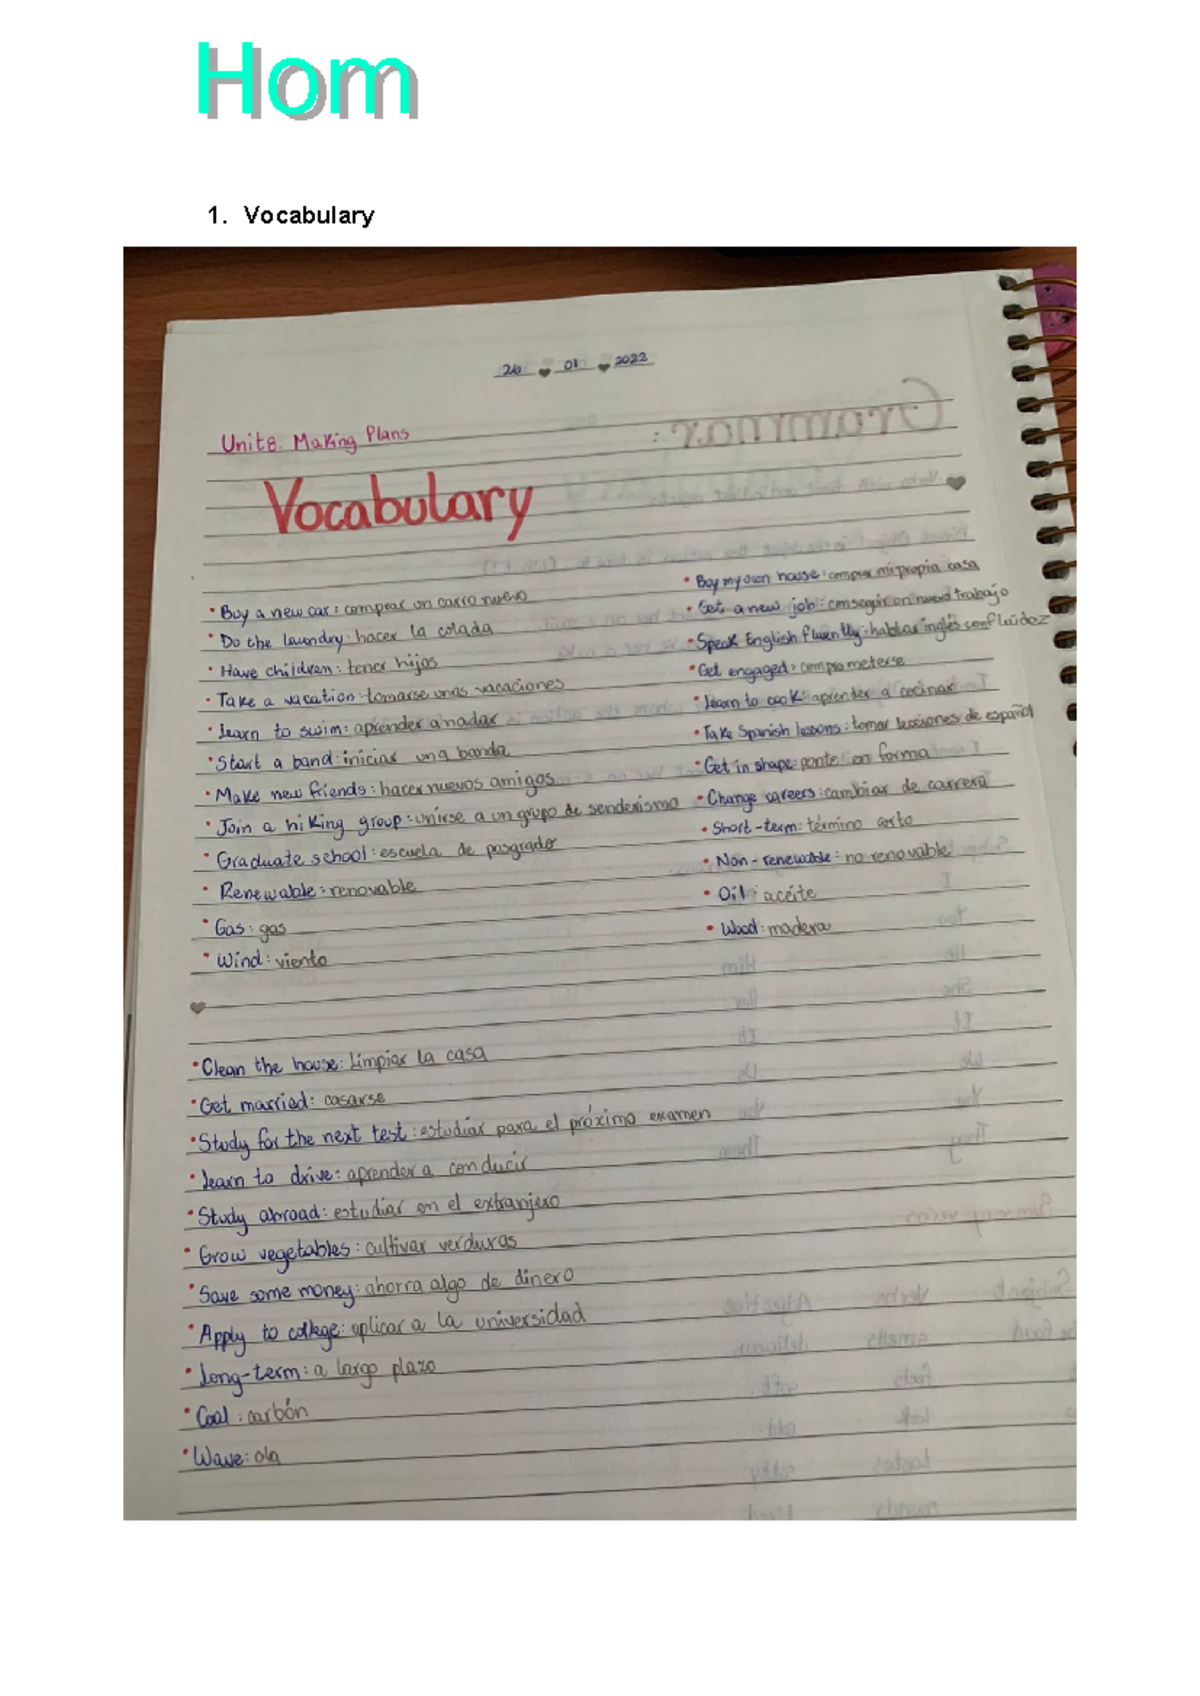 Hom
1. Vocabulary
26 01 2022
Unit 8. Making Plans
Vocabulary
• Buy a new car: comprar un carro nuevo
• Do the laundry: hacer la colada
• Have children: tener hijos
• Take a vacation: tomarse unas vacaciones
• Learn to swim: aprender a nadar
• Start a band: iniciar una banda
• Make new friends: hacer nuevos amigos
• Join a hiking group: unirse a un grupo de senderismo
• Graduate school: escuela de posgrado
• Renewable: renovable
• Gas: gas
• Wind: viento
• Buy my own house: comprar mi propia casa
• Get a new job: conseguir un nuevo trabajo
• Speak English fluently: hablar inglés con fluidez
• Get engaged: comprometerse
• Learn to cook: aprender a cocinar
• Take Spanish lessons: tomar lecciones de español
• Get in shape: ponte en forma
• Change careers: cambiar de carrera
• Short-term: término corto
• Non-renewable: no renovable
• Oil: aceite
• Wood: madera
• Clean the house: Limpiar la casa
• Get married: casarse
• Study for the next test: estudiar para el próximo examen
• Learn to drive: aprender a conducir
• Study abroad: estudiar en el extranjero
• Grow vegetables: cultivar verduras
• Save some money: ahorra algo de dinero
• Apply to college: aplicar a la universidad
• Long-term: a largo plazo
• Coal: carbón
• Wave: ola